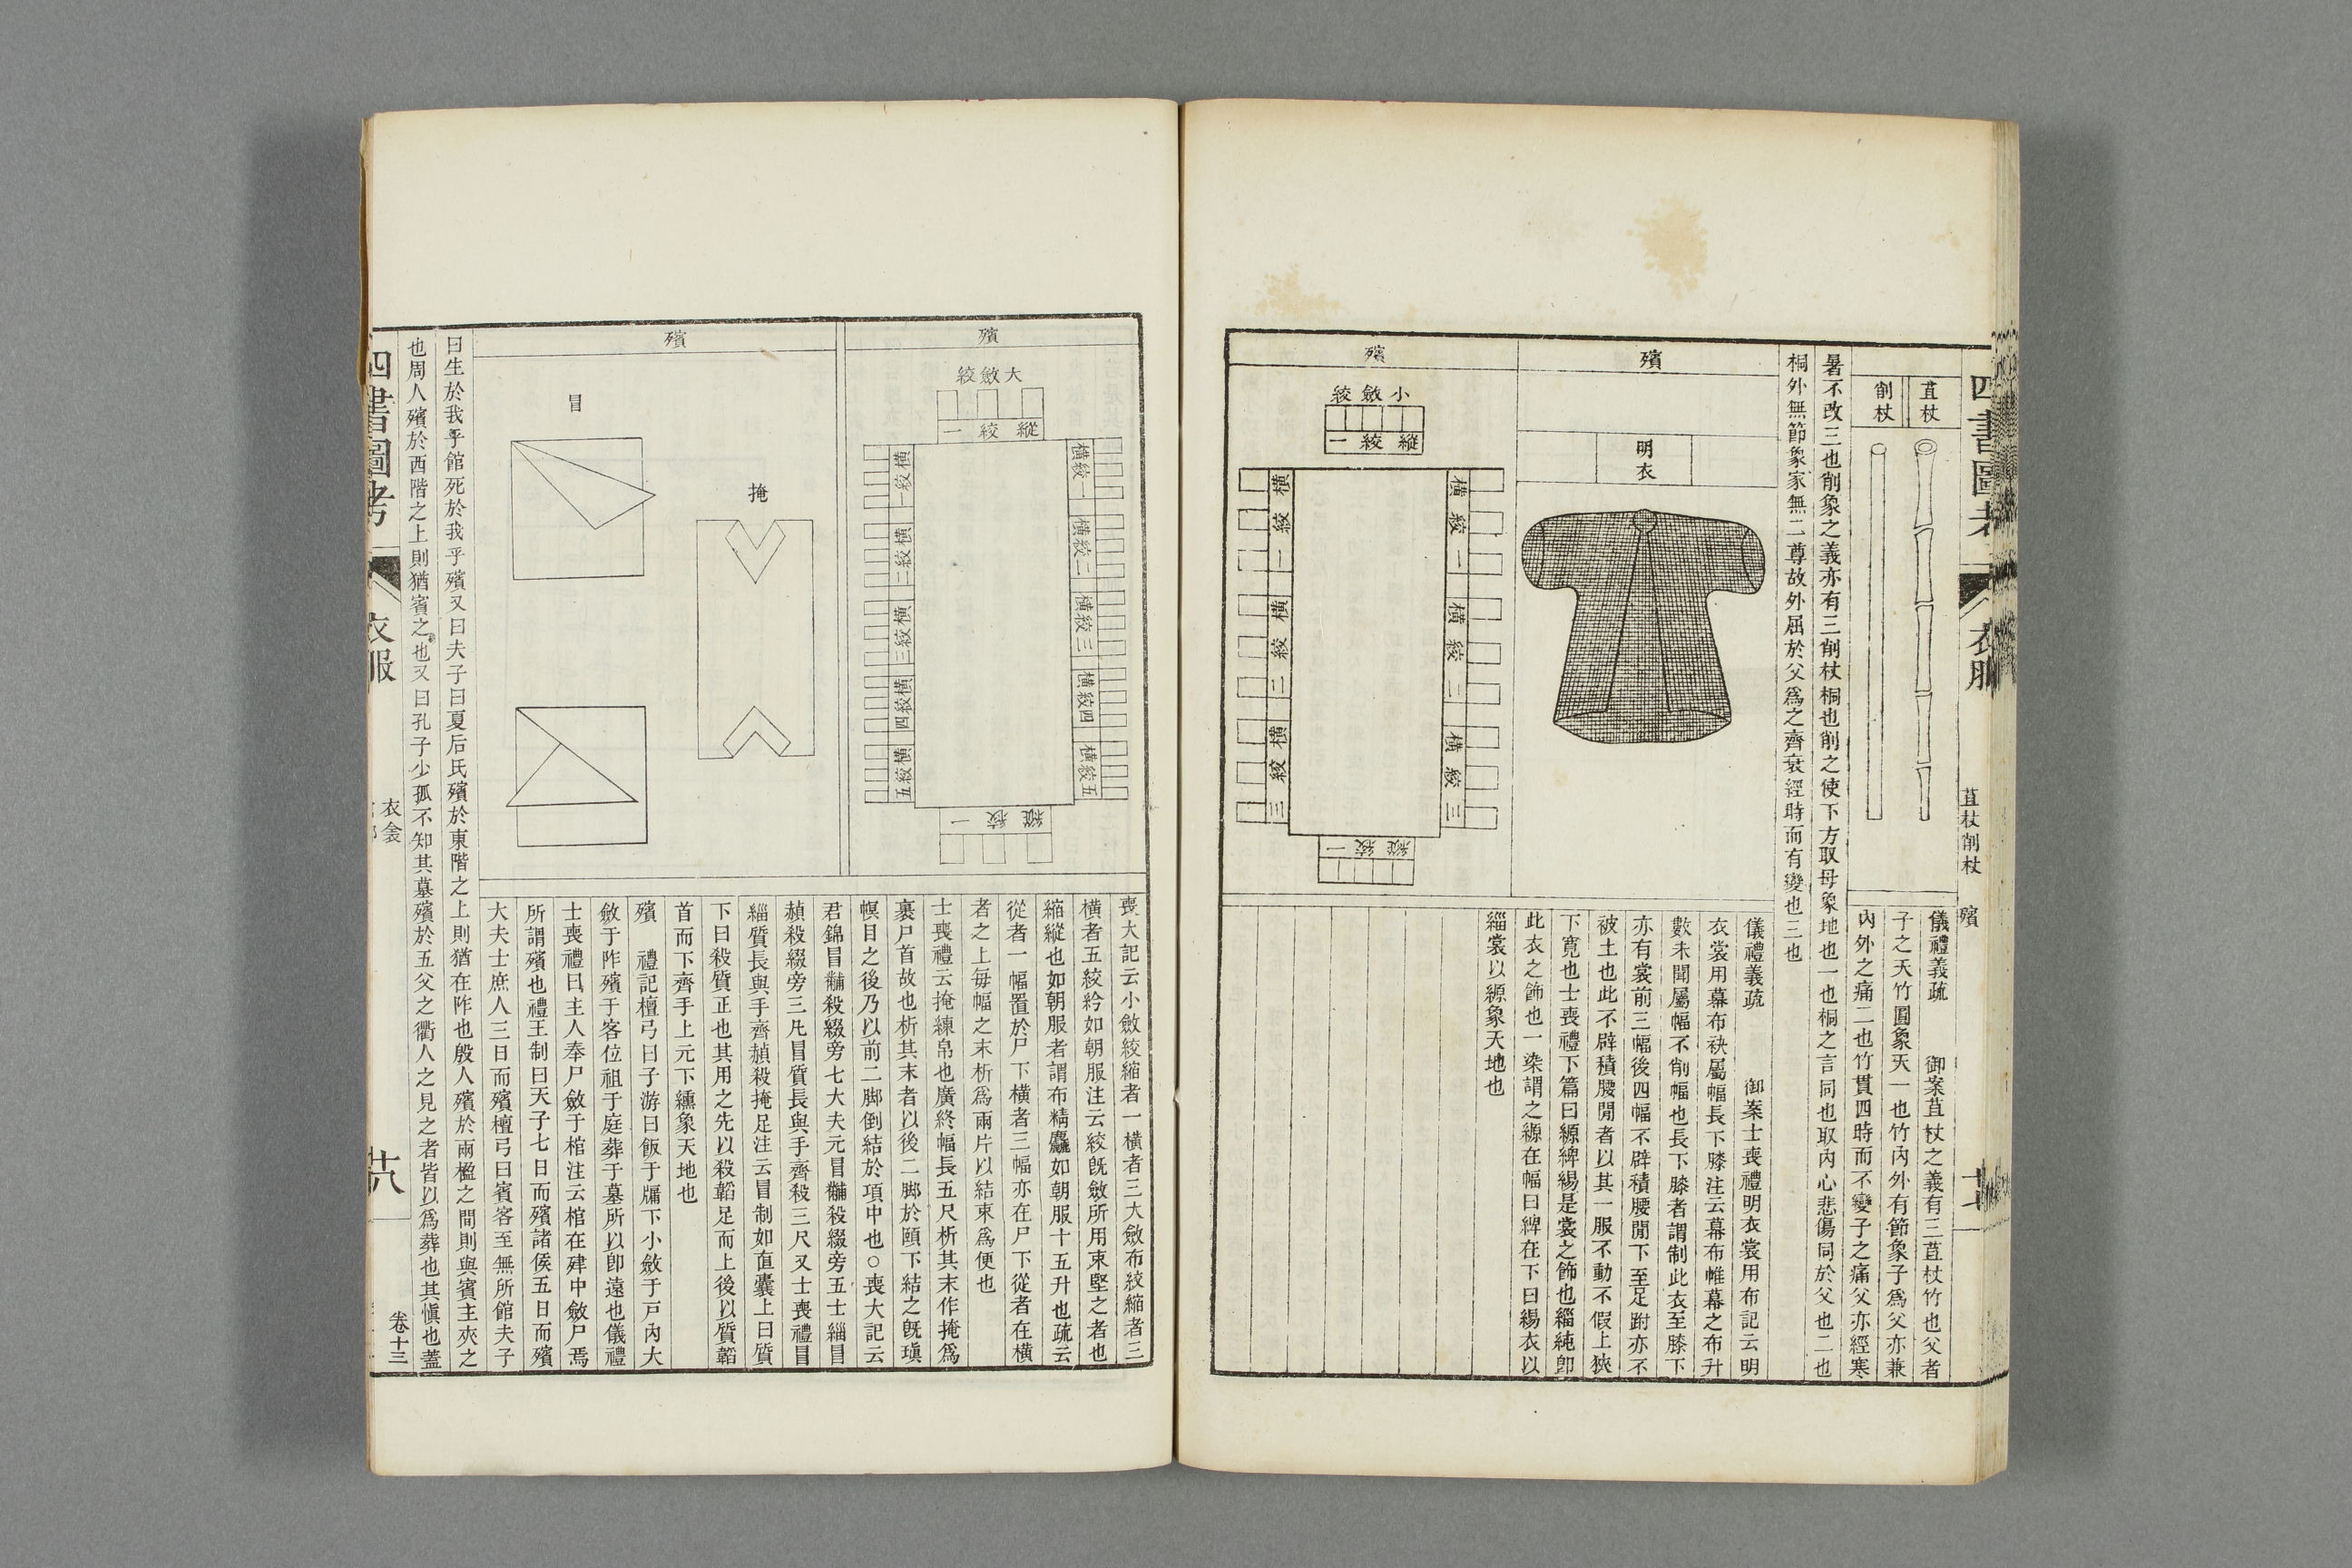 四書圖考
衣服
苴杖削杖
殯
苴杖
削杖
儀禮義疏 御案苴杖之義有三苴杖竹也父者
子之天竹圓象天一也竹內外有節象子爲父亦兼
內外之痛二也竹貫四時而不變子之痛父亦經寒
暑不改三也削象之義亦有三削杖桐也削之使下方取母象地也一也桐之言同也取內心悲傷同於父也二也
桐外無節象家無二尊故外屈於父爲之齊衰經時而有變也三也
殯
明衣
儀禮義疏 御案士喪禮明衣裳用布記云明
衣裳用幕布袂屬幅長下膝注云幕布帷幕之布升
數未聞屬幅不削幅也長下膝者謂制此衣至膝下
亦有裳前三幅後四幅不辟積腰閒下至足跗亦不
被土也此不辟積腰閒者以其一服不動不假上狹
下寬也士喪禮下篇曰縓綼緆是裳之飾也緇純卽
此衣之飾也一染謂之縓在幅曰綼在下曰緆衣以
緇裳以縓象天地也
殯
小斂絞
縱絞一
橫絞一
橫絞二
橫絞三
橫絞一
橫絞二
橫絞三
縱絞一
殯
大斂絞
縱絞一
橫絞一
橫絞二
橫絞三
橫絞四
橫絞五
橫絞一
橫絞二
橫絞三
橫絞四
橫絞五
縱絞一
喪大記云小斂絞縮者一橫者三大斂布絞縮者三
橫者五絞紟如朝服注云絞旣斂所用束堅之者也
縮縱也如朝服者謂布精麤如朝服十五升也疏云
從者一幅置於尸下橫者三幅亦在尸下從者在橫
者之上每幅之末析爲兩片以結束爲便也
殯
掩
冒
士喪禮云掩練帛也廣終幅長五尺析其末作掩爲
裹尸首故也析其末者以後二脚於頤下結之旣瑱
幎目之後乃以前二脚倒結於項中也○喪大記云
君錦冒黼殺綴旁七大夫元冒黼殺綴旁五士緇冒
赬殺綴旁三凡冒質長與手齊殺三尺又士喪禮冒
緇質長與手齊赬殺掩足注云冒制如直囊上曰質
下曰殺質正也其用之先以殺韜足而上後以質韜
首而下齊手上元下纁象天地也
殯 禮記檀弓曰子游曰飯于牖下小斂于戸內大
斂于阼殯于客位祖于庭葬于墓所以卽遠也儀禮
士喪禮曰主人奉尸斂于棺注云棺在肂中斂尸焉
所謂殯也禮王制曰天子七日而殯諸侯五日而殯
大夫士庶人三日而殯檀弓曰賓客至無所館夫子
曰生於我乎館死於我乎殯又曰夫子曰夏后氏殯於東階之上則猶在阼也殷人殯於兩楹之間則與賓主夾之
也周人殯於西階之上則猶賓之也又曰孔子少孤不知其墓殯於五父之衢人之見之者皆以爲葬也其愼也蓋
四書圖考
衣服
衣衾
卷十三